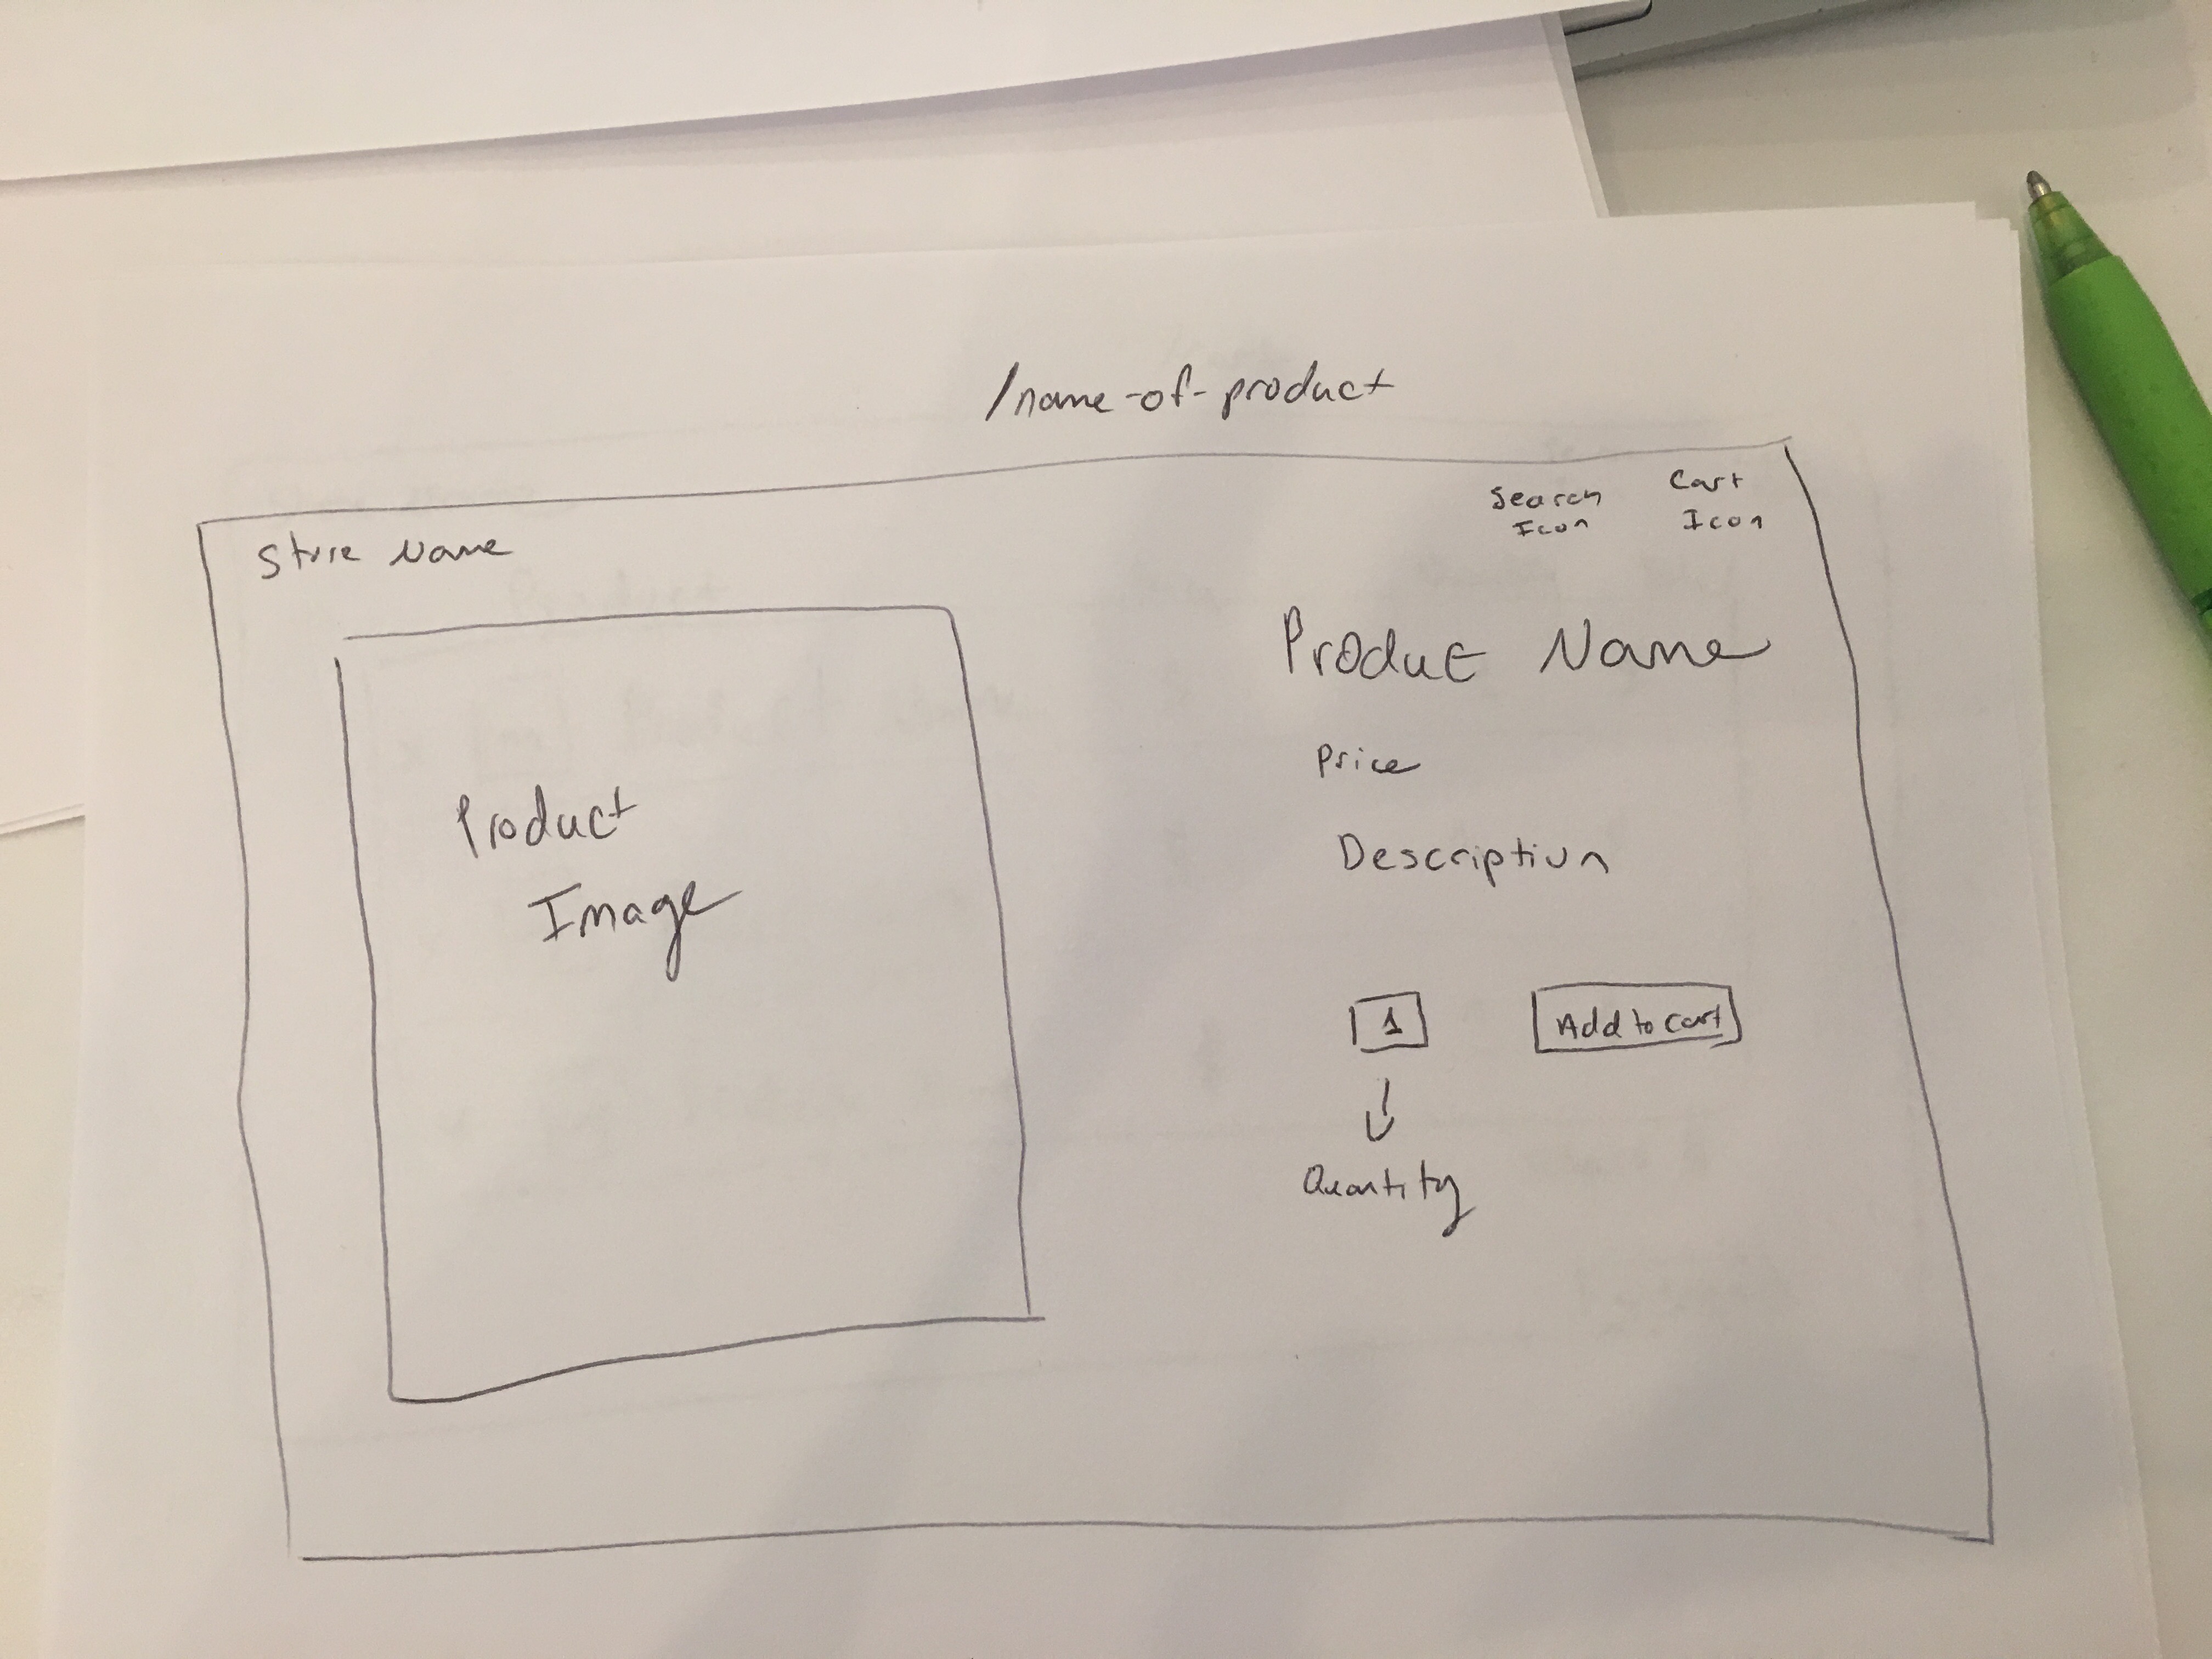 /name-of-product
Store Name
Search
Icon
Cart
Icon
Product
Image
Product Name
Price
Description
1
Add to cart
Quantity